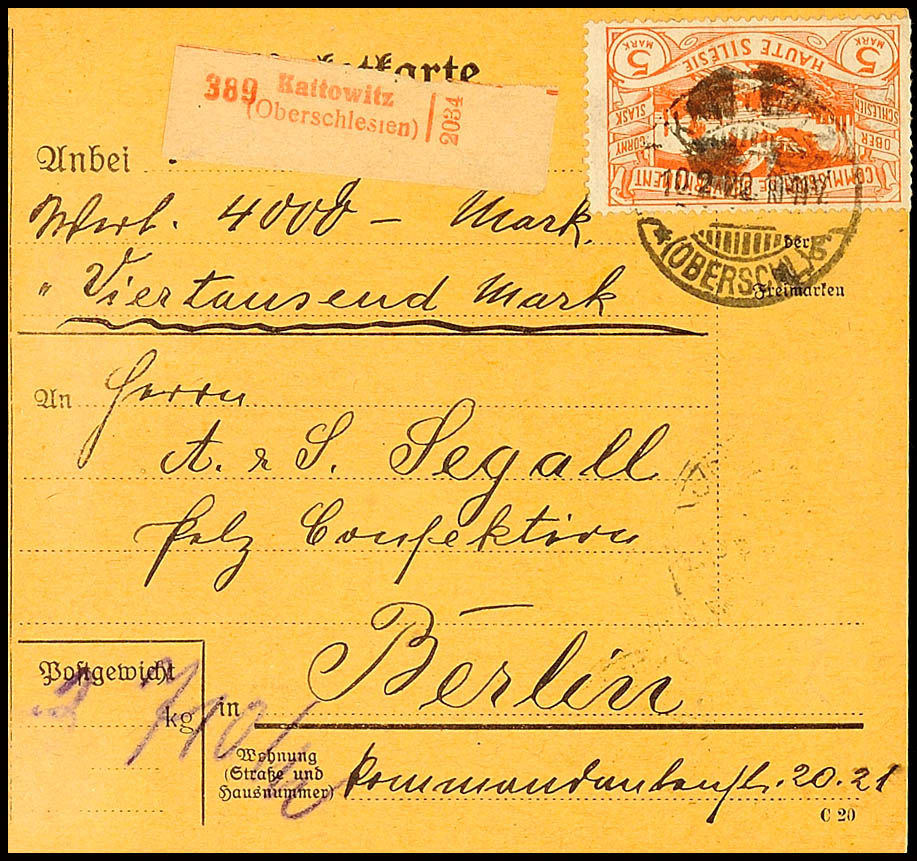 389 Kattowitz
(Oberschlesien)
2034
5 MARK HAUTE SILESIE 5 MARK
SLASK OBER SCHLESIEN
GORNY
(OBERSCHL)
Anbei
Wert. 4000 – Mark.
der
Freimarken
" Viertausend Mark
An Herrn
A. & S. Segall
Pelz Confektion
Berlin
Postgewicht
kg
in
Wohnung
(Straße und
Hausnummer)
Kommandantenstr. 20.21
C 20